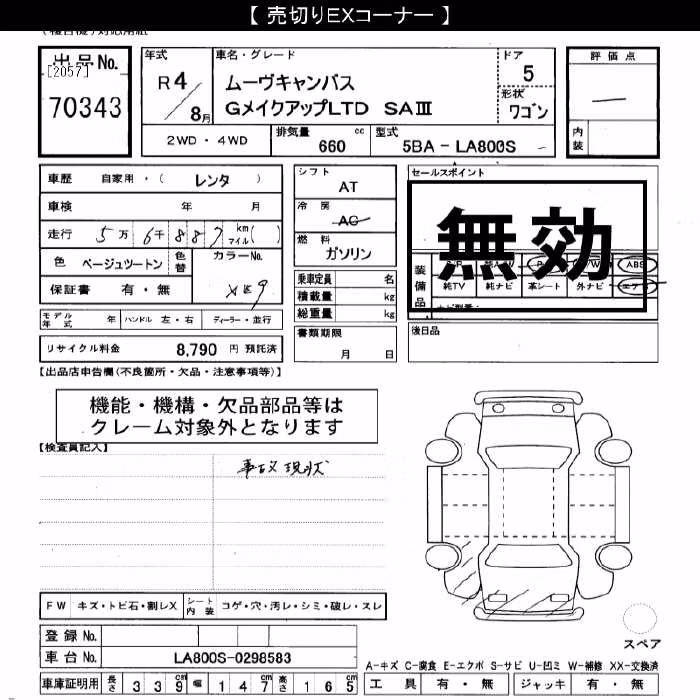 【 売切りEXコーナー 】
出品No.
[2057]
70343
年式
R4/8月
車名・グレード
ムーヴキャンバス
GメイクアップLTD SAⅢ
ドア
5
形状
ワゴン
評価点
―
内装
2WD・4WD
排気量 660 cc
型式 5BA - LA800S
車歴 自家用・( レンタ )
車検 年 月
走行 5万 6千 8 8 7 km マイル( )
色 ベージュツートン 色替 カラーNo.
X29
保証書 有・無
モデル年式 年 ハンドル 左・右 ディーラー・並行
リサイクル料金 8,790 円 預託済
シフト
AT
冷房
AC
燃料
ガソリン
乗車定員 名
積載量 kg
総重量 kg
書類期限
月 日
セールスポイント
無効
装備品
ABS
純TV 純ナビ 革シート 外ナビ エアB
後日品
【出品店申告欄(不良箇所・欠品・注意事項等)】
機能・機構・欠品部品等は
クレーム対象外となります
【検査員記入】
事故現状
FW キズ・トビ石・割レX シート内装 コゲ・穴・汚レ・シミ・破レ・スレ
登録No.
車台No. LA800S-0298583
車庫証明用 長さ 339cm 幅 147cm 高さ 165cm
スペア
A-キズ C-腐食 E-エクボ S-サビ U-凹ミ W-補修 XX-交換済
工具 有・無 ジャッキ 有・無